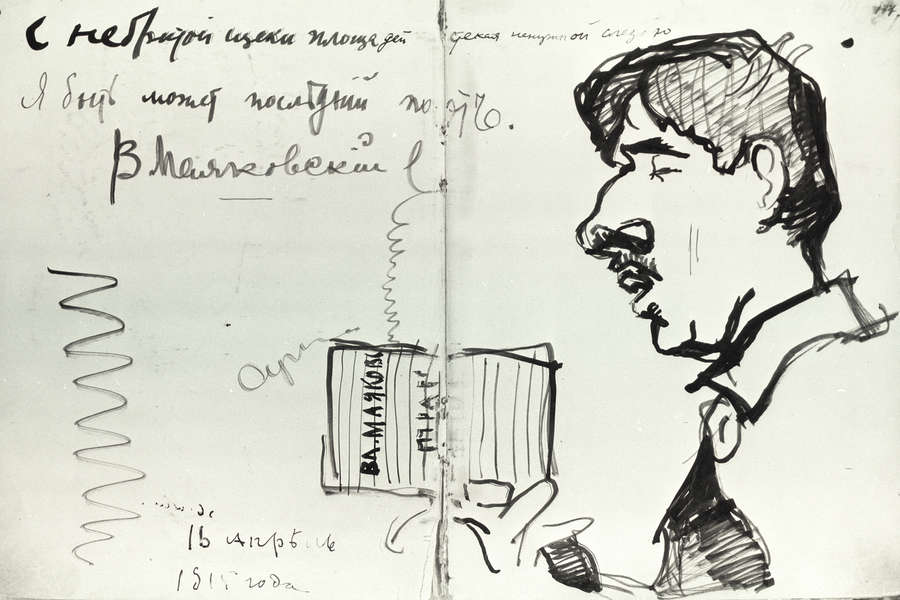 С небритой щеки площадей стекая ненужной слезою
Я быть может послѣдний поэтъ.
В Маяковский
ВЛ. МАЯКОВ
апрѣль
1915 года